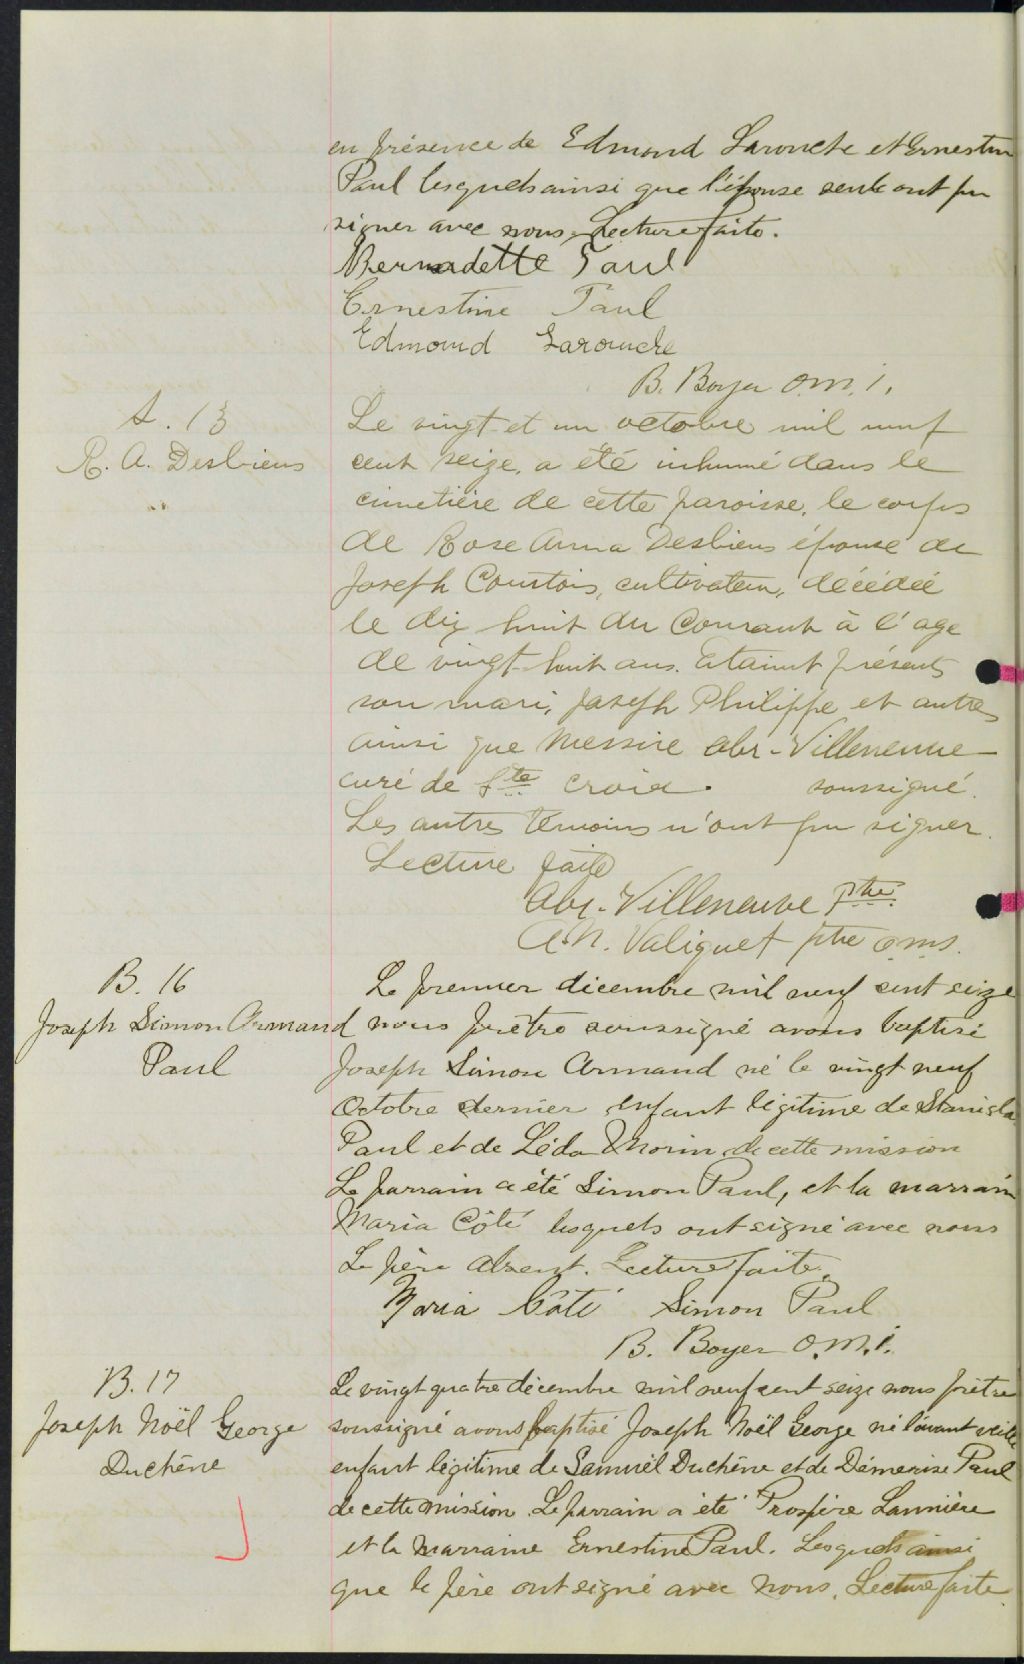 en présence de Edmond Larouche et Ernestine
Paul lesquels ainsi que l'épouse seule ont pu
signer avec nous. Lecture faite.
Bernadette Paul
Ernestine Paul
Edmond Larouche
B. Boyer O.M.I.
S. 13
R. A. Desbiens
Le vingt et un octobre mil neuf
cent seize, a été inhumé dans le
cimetière de cette paroisse, le corps
de Rose Anna Desbiens épouse de
Joseph Courtois, cultivateur, décédée
le dix huit du courant à l'age
de vingt-huit ans. Etaient présents
son mari, Joseph Philippe et autres
ainsi que Messire Abr-Villeneuve
curé de Ste Croix. soussigné.
Les autres témoins n'ont pu signer.
Lecture faite
Abr-Villeneuve Ptre
A.N. Valiquet ptre o.m.i.
B. 16
Joseph Simon Armand
Paul
Le premier décembre mil neuf cent seize
nous prêtre soussigné avons baptisé
Joseph Simon Armand né le vingt neuf
Octobre dernier enfant légitime de Stanisla
Paul et de Léda Morin de cette mission
Le parrain a été Simon Paul, et la marrain
Maria Côté lesquels ont signé avec nous
Le père absent. Lecture faite.
Maria Côté Simon Paul
B. Boyer O.M.I.
B. 17
Joseph Noël George
Duchêne
Le vingt quatre décembre mil neuf cent seize nous prêtre
soussigné avons baptisé Joseph Noël George né l'avant veille
enfant légitime de Samuël Duchêne et de Démerise Paul
de cette mission Le parrain a été Prospère Lannière
et la marraine Ernestine Paul. Lesquels ainsi
que le père ont signé avec nous. Lecture faite.